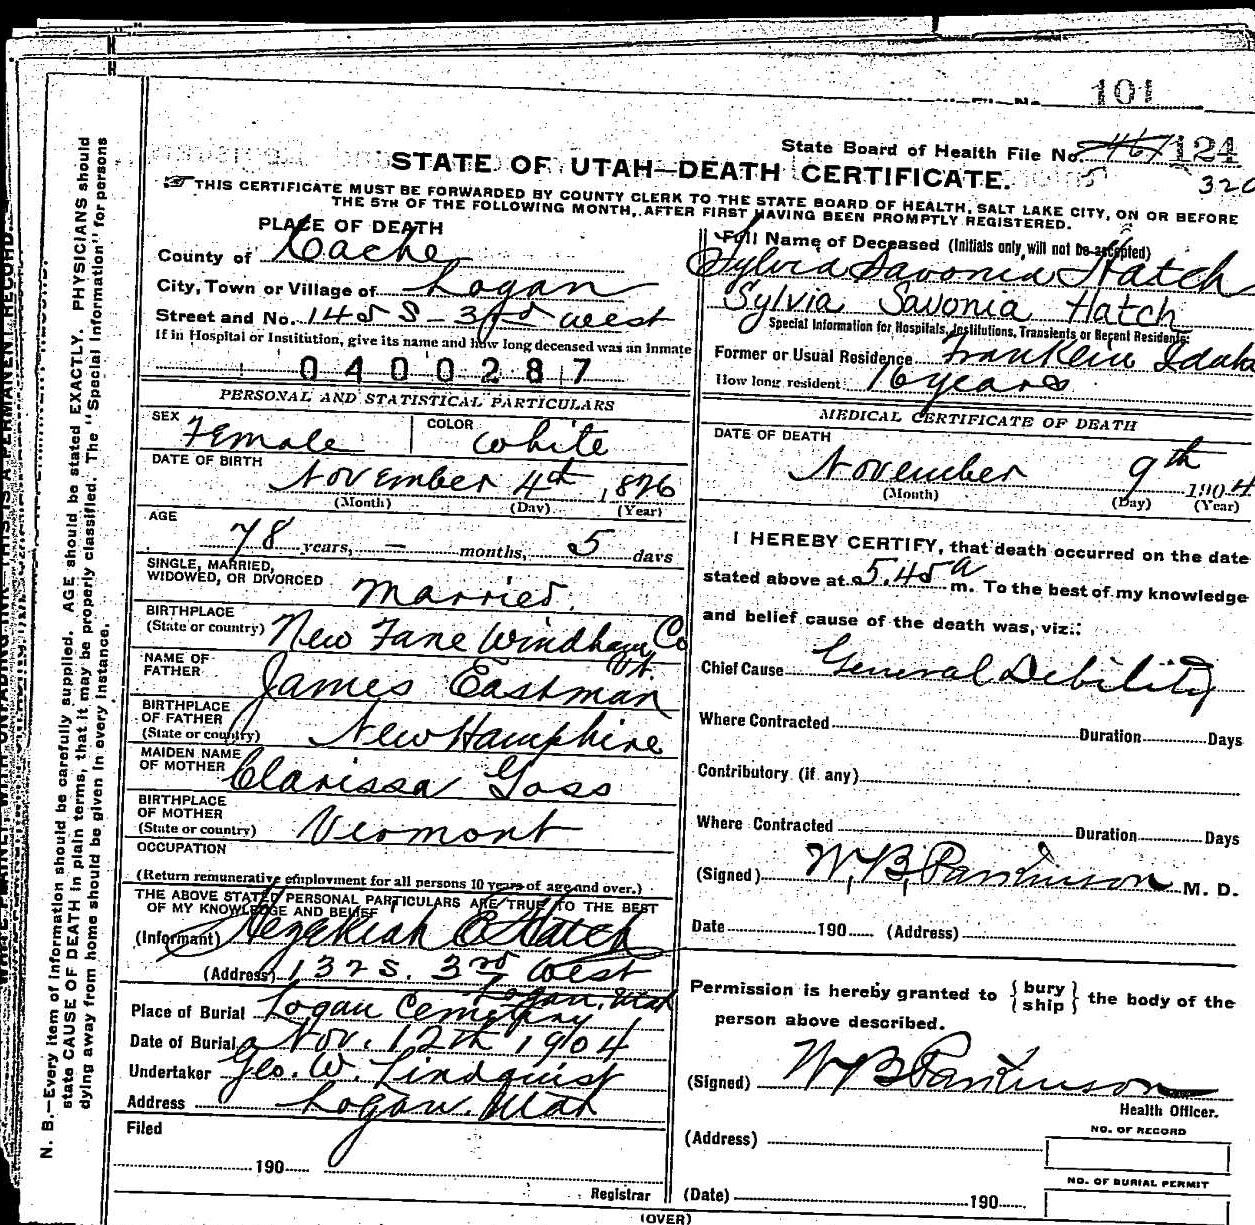 101
State Board of Health File No. 467 124
5 320
STATE OF UTAH—DEATH CERTIFICATE.
THIS CERTIFICATE MUST BE FORWARDED BY COUNTY CLERK TO THE STATE BOARD OF HEALTH, SALT LAKE CITY, ON OR BEFORE
THE 5TH OF THE FOLLOWING MONTH, AFTER FIRST HAVING BEEN PROMPTLY REGISTERED.
PLACE OF DEATH
County of Cache
City, Town or Village of Logan
Street and No. 145 S - 3rd West
If in Hospital or Institution, give its name and how long deceased was an Inmate
0400287
PERSONAL AND STATISTICAL PARTICULARS
SEX Female COLOR White
DATE OF BIRTH November 4th, 1826
(Month) (Day) (Year)
AGE
78 years, — months, 5 days
SINGLE, MARRIED,
WIDOWED, OR DIVORCED Married.
BIRTHPLACE
(State or country) New Fane Windham Co
Vt.
NAME OF
FATHER James Eastman
BIRTHPLACE
OF FATHER
(State or country) New Hamphire
MAIDEN NAME
OF MOTHER Clarissa Goss
BIRTHPLACE
OF MOTHER
(State or country) Vermont
OCCUPATION
(Return remunerative employment for all persons 10 years of age and over.)
THE ABOVE STATED PERSONAL PARTICULARS ARE TRUE TO THE BEST
OF MY KNOWLEDGE AND BELIEF
(Informant) Hezekiah E Hatch
(Address) 132 S. 3rd West
Logan, Utah
Place of Burial Logan Cemetery
Date of Burial Nov. 12th 1904
Undertaker Geo. W. Lindquist
Address Logan, Utah
Filed
190
Registrar
Full Name of Deceased (Initials only, will not be accepted)
Sylvia Savonia Hatch
Sylvia Savonia Hatch
Special Information for Hospitals, Institutions, Transients or Recent Residents:
Former or Usual Residence Franklin Idaho
How long resident: 16 years
MEDICAL CERTIFICATE OF DEATH
DATE OF DEATH
November 9th 1904
(Month) (Day) (Year)
I HEREBY CERTIFY, that death occurred on the date
stated above at 5.45 a m. To the best of my knowledge
and belief cause of the death was, viz.:
Chief Cause General Debility
Where Contracted Duration Days
Contributory (if any)
Where Contracted Duration Days
(Signed) W. B. Parkinson M. D.
Date 190 (Address)
Permission is hereby granted to {bury ship} the body of the
person above described.
(Signed) W B Parkinson
Health Officer.
(Address)
NO. OF RECORD
NO. OF BURIAL PERMIT
(Date) 190
(OVER)
N. B.—Every item of information should be carefully supplied. AGE should be stated EXACTLY. PHYSICIANS should
state CAUSE OF DEATH in plain terms, that it may be properly classified. The "Special Information" for persons
dying away from home should be given in every instance.